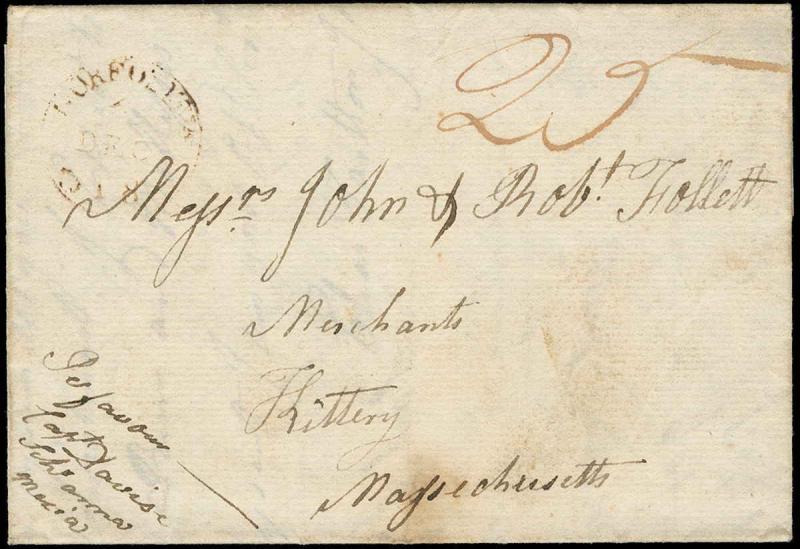 NORFOLK VA
DEC
18
25
Messrs John & Robt Follett
Merchants
Kittery
Massachusetts
Pr favour
Capt Davise
Schr Anna
Maria